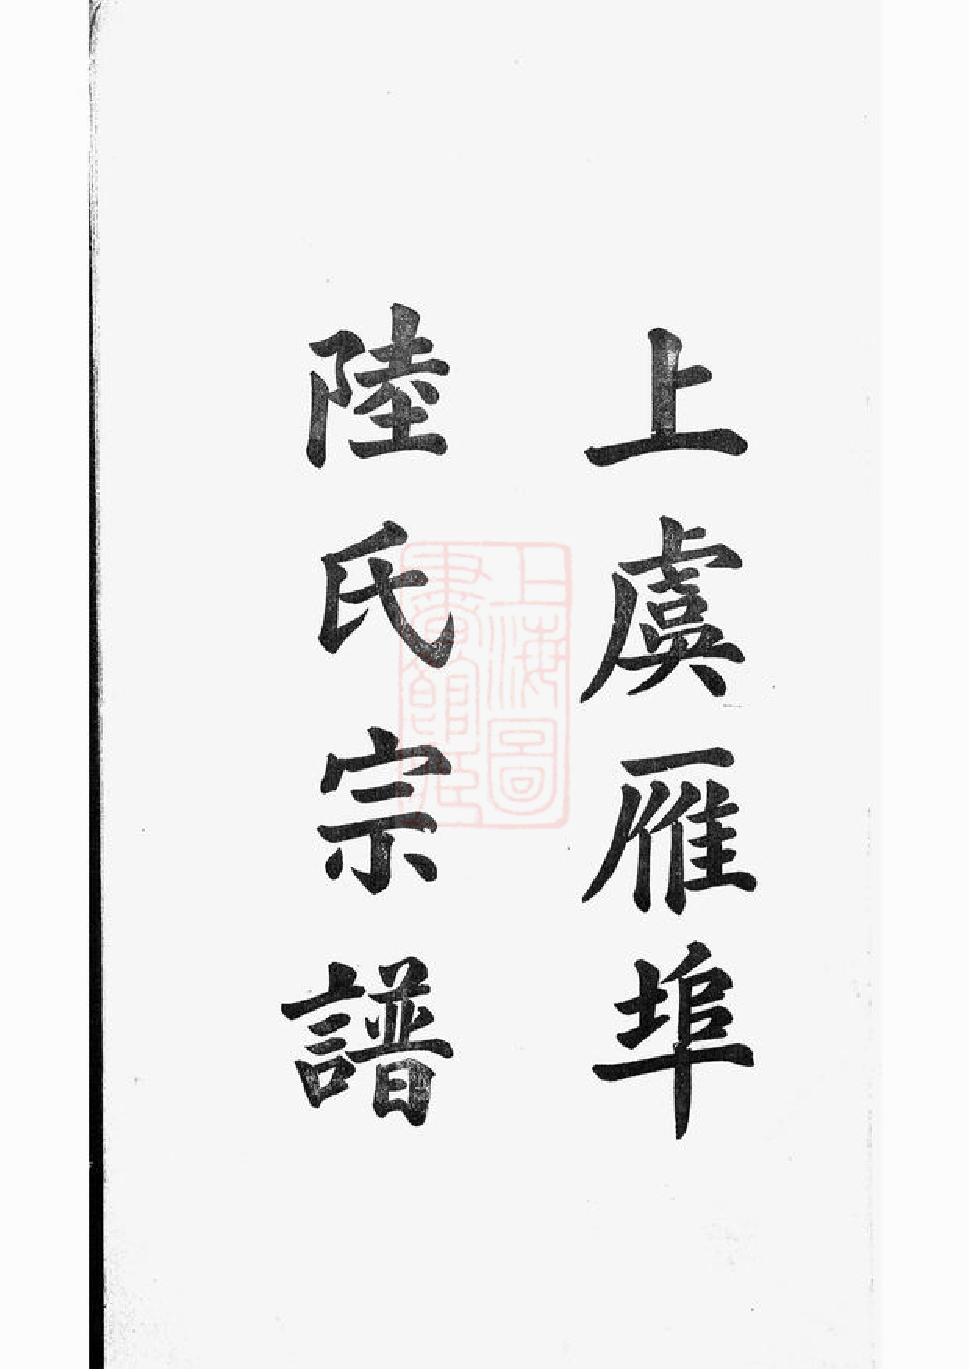 上虞雁埠
陸氏宗譜
上海圖
書館藏